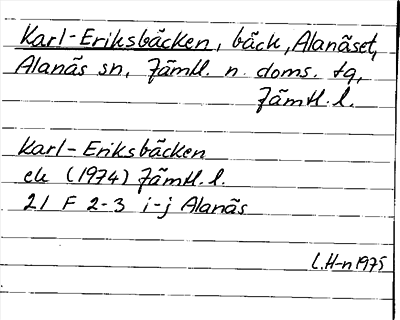 Karl-Eriksbäcken, bäck, Alanäset,
Alanäs sn, Jämtl. n. doms. tg,
Jämtl. l.
Karl-Eriksbäcken
ek (1974) Jämtl. l.
21 F 2-3 i-j Alanäs
L.H-n 1975